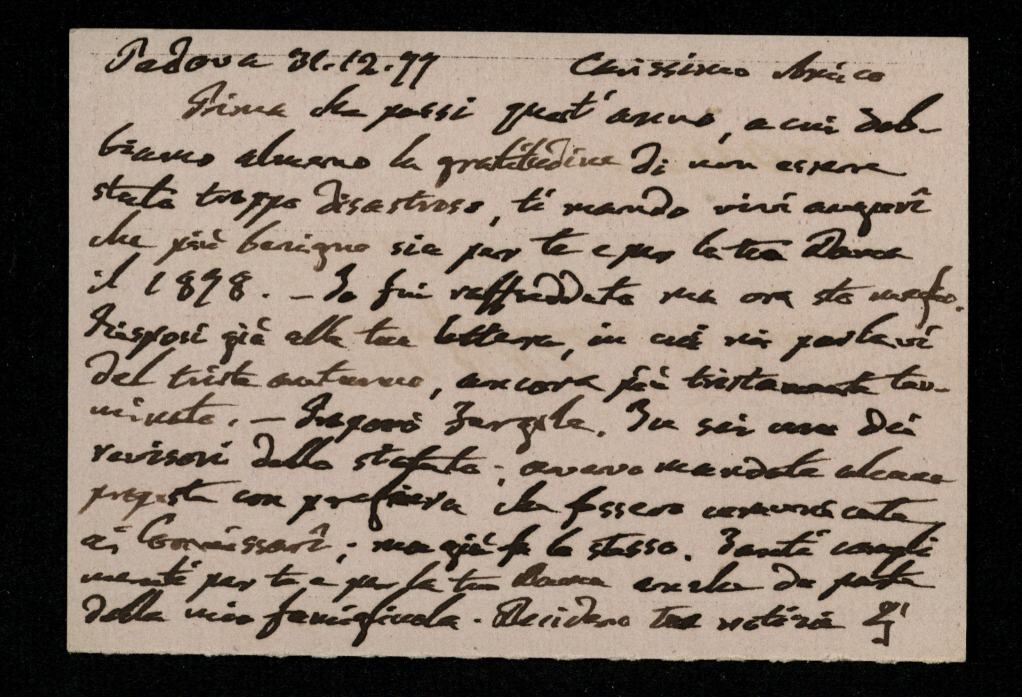 Padova 31.12.97 Carissimo Amico
Prima che passi quest'anno, a cui dob-
biamo almeno la gratitudine di non essere
stato troppo disastroso, ti mando vivi augurî
che più benigno sia per te e per la tua Dama
il 1898. – Io fui raffreddato ma ora sto meglio.
Risposi già alla tua lettera, in cui mi parlavi
del triste autunno, ancora più tristamente ter-
minato. – Tu sei uno dei
revisori dello statuto; avevo mandato alcune
proposte con preghiera che fossero comunicate
ai Commissarî; ma già fa lo stesso. Tanti compli
menti per te e per la tua Dama anche da parte
della mia famigliuola. Desidero tue notizie